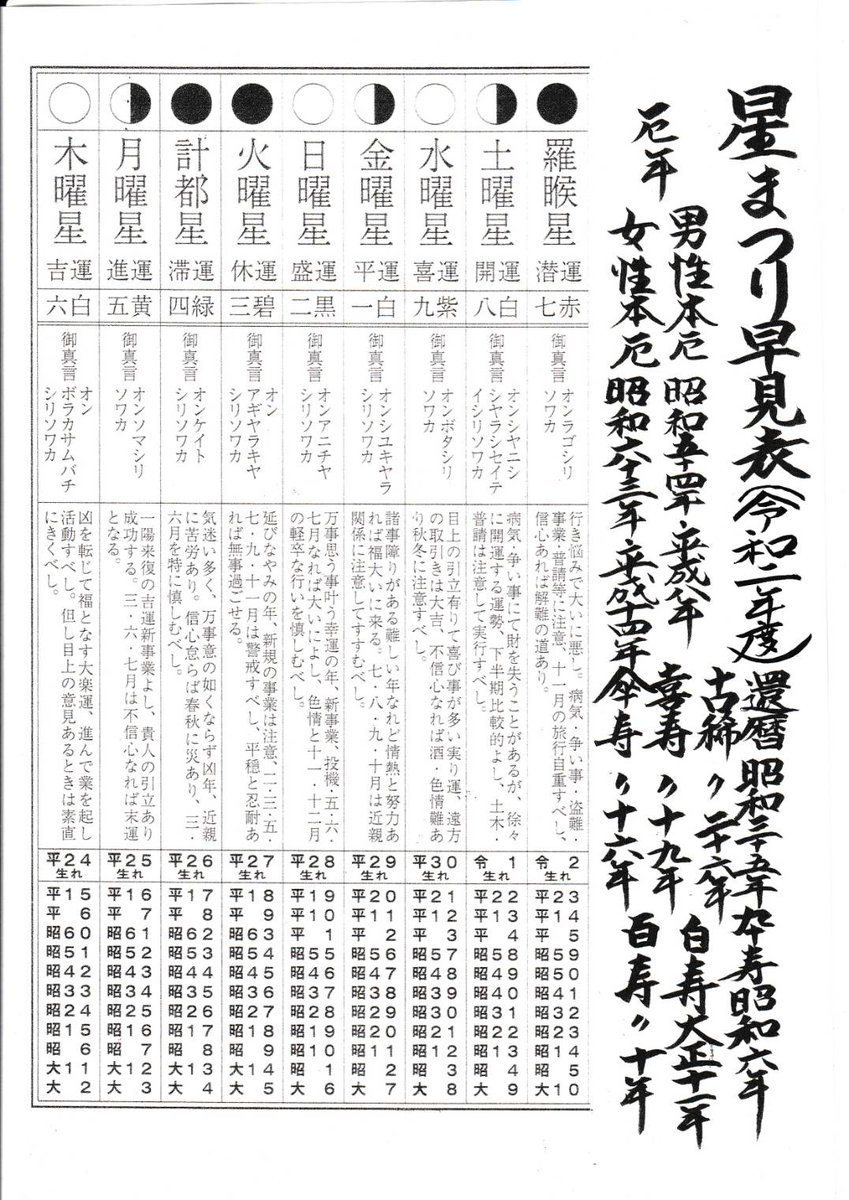 星まつり早見表(令和二年度)
厄年
男性本厄 昭和五十四年・平成八年
女性本厄 昭和六十三年・平成十四年
還暦 昭和三十五年
古稀 〃 二十六年
喜寿 〃 十九年
傘寿 〃 十六年
卆寿 昭和六年
白寿 大正十一年
百寿 〃 十年
羅睺星
潜運
七赤
御真言
オンラゴシリ
ソワカ
行き悩みで大いに悪し。病気・争い事・盗難・
事業・普請等に注意、十一月の旅行自重すべし、
信心あれば解難の道あり。
令 2
生れ
平23
平14
平 5
昭59
昭50
昭41
昭32
昭23
昭14
昭 5
大10
土曜星
開運
八白
御真言
オンシヤニシ
シヤラシセイテ
イシリソワカ
病気・争い事にて財を失うことがあるが、徐々
に開運する運勢、下半期比較的よし、土木・
普請は注意して実行すべし。
令 1
生れ
平22
平13
平 4
昭58
昭49
昭40
昭31
昭22
昭13
昭 4
大 9
水曜星
喜運
九紫
御真言
オンボタシリ
ソワカ
目上の引立有りて喜び事が多い実り運、遠方
の取引きは大吉、不信心なれば酒・色情難あ
り秋冬に注意すべし。
平30
生れ
平21
平12
平 3
昭57
昭48
昭39
昭30
昭21
昭12
昭 3
大 8
金曜星
平運
一白
御真言
オンシユキヤラ
シリソワカ
諸事障りがある難しい年なれど情熱と努力あ
れば福大いに来る。七・八・九・十月は近親
関係に注意してすすむべし。
平29
生れ
平20
平11
平 2
昭56
昭47
昭38
昭29
昭20
昭11
昭 2
大 7
日曜星
盛運
二黒
御真言
オンアニチヤ
シリソワカ
万事思う事叶う幸運の年、新事業、投機・五・六・
七月なれば大いによし、色情と十一・十二月
の軽卒な行いを慎しむべし。
平28
生れ
平19
平10
平 1
昭55
昭46
昭37
昭28
昭19
昭10
昭 1
大 6
火曜星
休運
三碧
御真言
オン
アギヤラキヤ
シリソワカ
延びなやみの年、新規の事業は注意、二・三・五・
七・九・十一月は警戒すべし、平穏と忍耐あ
れば無事過ごせる。
平27
生れ
平18
平 9
昭63
昭54
昭45
昭36
昭27
昭18
昭 9
大14
大 5
計都星
滞運
四緑
御真言
オンケイト
シリソワカ
気迷い多く、万事意の如くならず凶年、近親
に苦労あり。信心怠らば春秋に災あり、三・
六月を特に慎しむべし。
平26
生れ
平17
平 8
昭62
昭53
昭44
昭35
昭26
昭17
昭 8
大13
大 4
月曜星
進運
五黄
御真言
オンソマシリ
ソワカ
一陽来復の吉運新事業よし、貴人の引立あり
成功する。三・六・七月は不信心なれば末運
となる。
平25
生れ
平16
平 7
昭61
昭52
昭43
昭34
昭25
昭16
昭 7
大12
大 3
木曜星
吉運
六白
御真言
オン
ボラカサムバチ
シリソワカ
凶を転じて福となす大楽運、進んで業を起し
活動すべし。但し目上の意見あるときは素直
にきくべし。
平24
生れ
平15
平 6
昭60
昭51
昭42
昭33
昭24
昭15
昭 6
大11
大 2